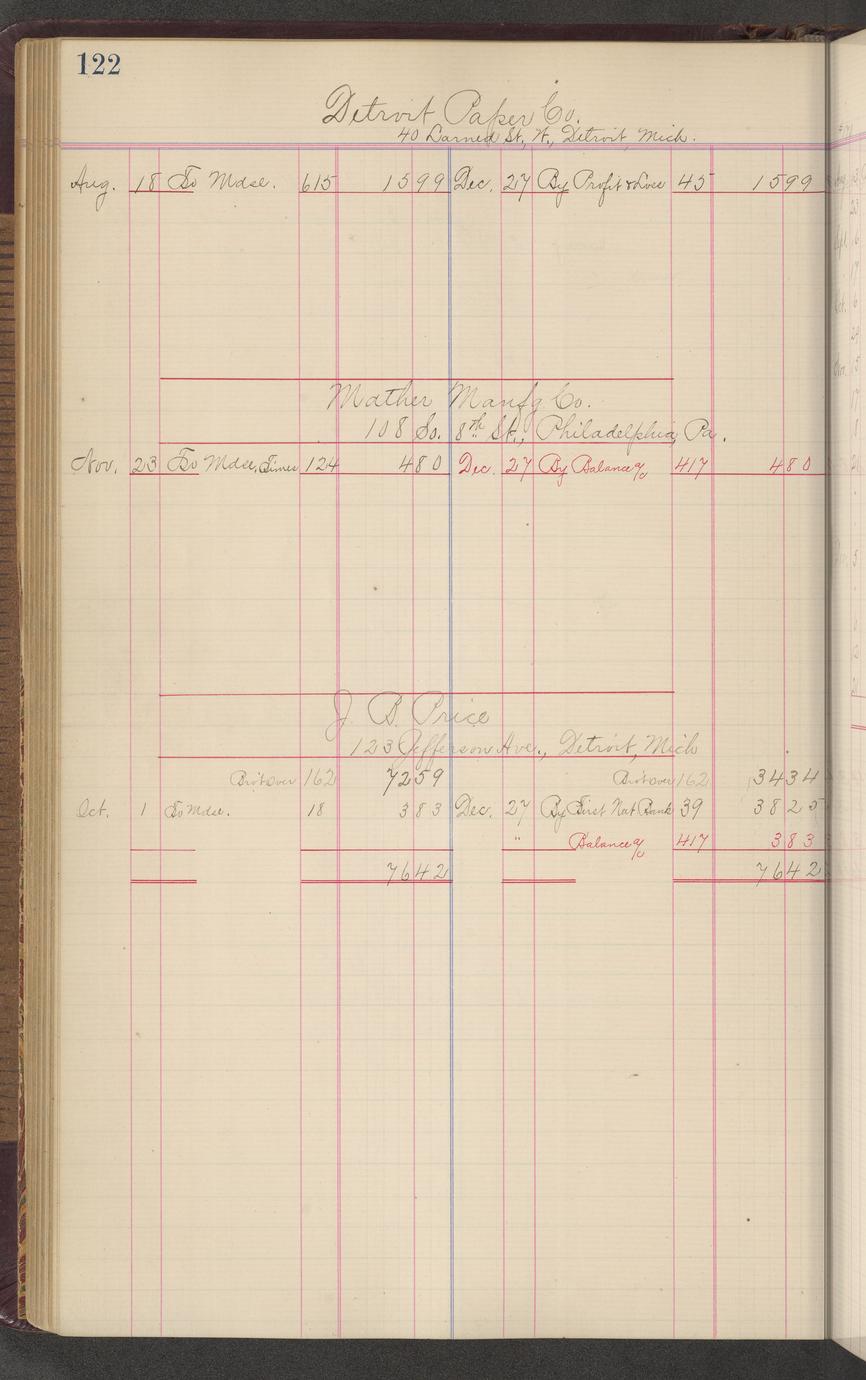 122
Detroit Paper Co.
40 Larned St., W., Detroit, Mich.
Aug. 18 To Mdse. 615 15 99 Dec. 27 By Profit & Loss 45 15 99
Mather Manfg Co.
108 So. 8th St., Philadelphia, Pa.
Nov. 23 To Mdse, Times 124 4 80 Dec. 27 By Balance a/c 417 4 80
J. B. Price
123 Jefferson Ave., Detroit, Mich
Bro't over 162 72 59 Bro't over 162 34 34
Oct. 1 To Mdse. 18 3 83 Dec. 27 By First Nat Bank 39 38 25
" Balance a/c 417 3 83
76 42 76 42